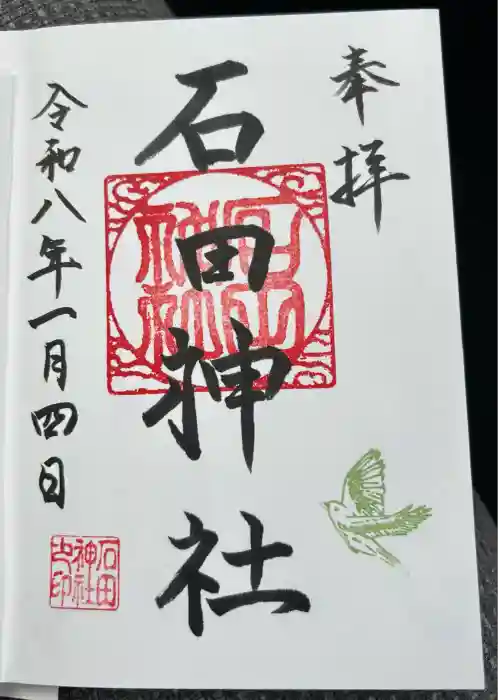 奉拝
石田神社
令和八年一月四日
石田
神社
之印